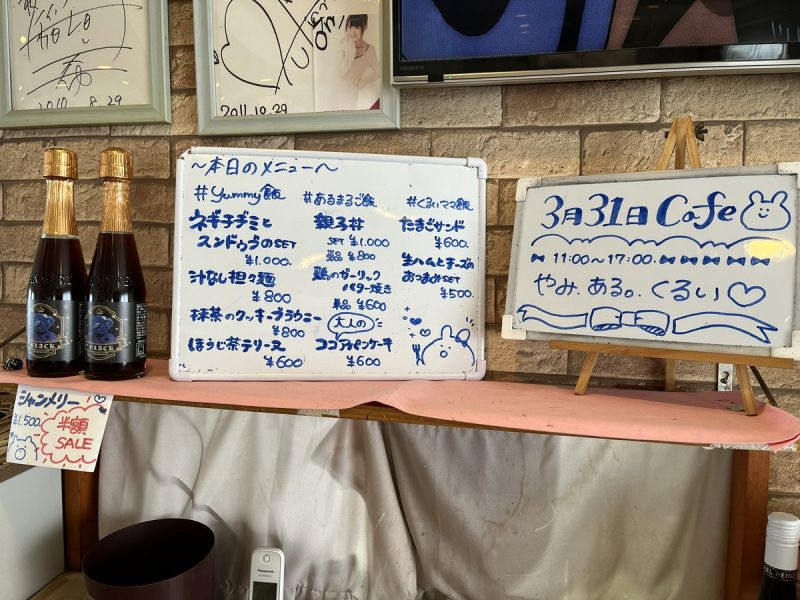 2010 8.29
2011.10.29
〜本日のメニュー〜
#Yummy飯
ネギチヂミと
スンドゥブのSET
¥1.000.
汁なし担々麺
¥800
抹茶のクッキーブラウニー
¥800
ほうじ茶テリーヌ
¥600
#あるまるご飯
親子丼
SET ¥1.000
単品 ¥800
鶏のガーリック
バター焼き
単品 ¥600
大人の
ココアパンケーキ
¥600
#くるいママ飯
たまごサンド
¥600.
生ハムとチーズの
おつまみSET
¥500.
3月31日 Cafe
11:00〜17:00.
やみ.ある。くるい♡
BLACK
シャンメリー
¥1.500.
半額
SALE
Panasonic